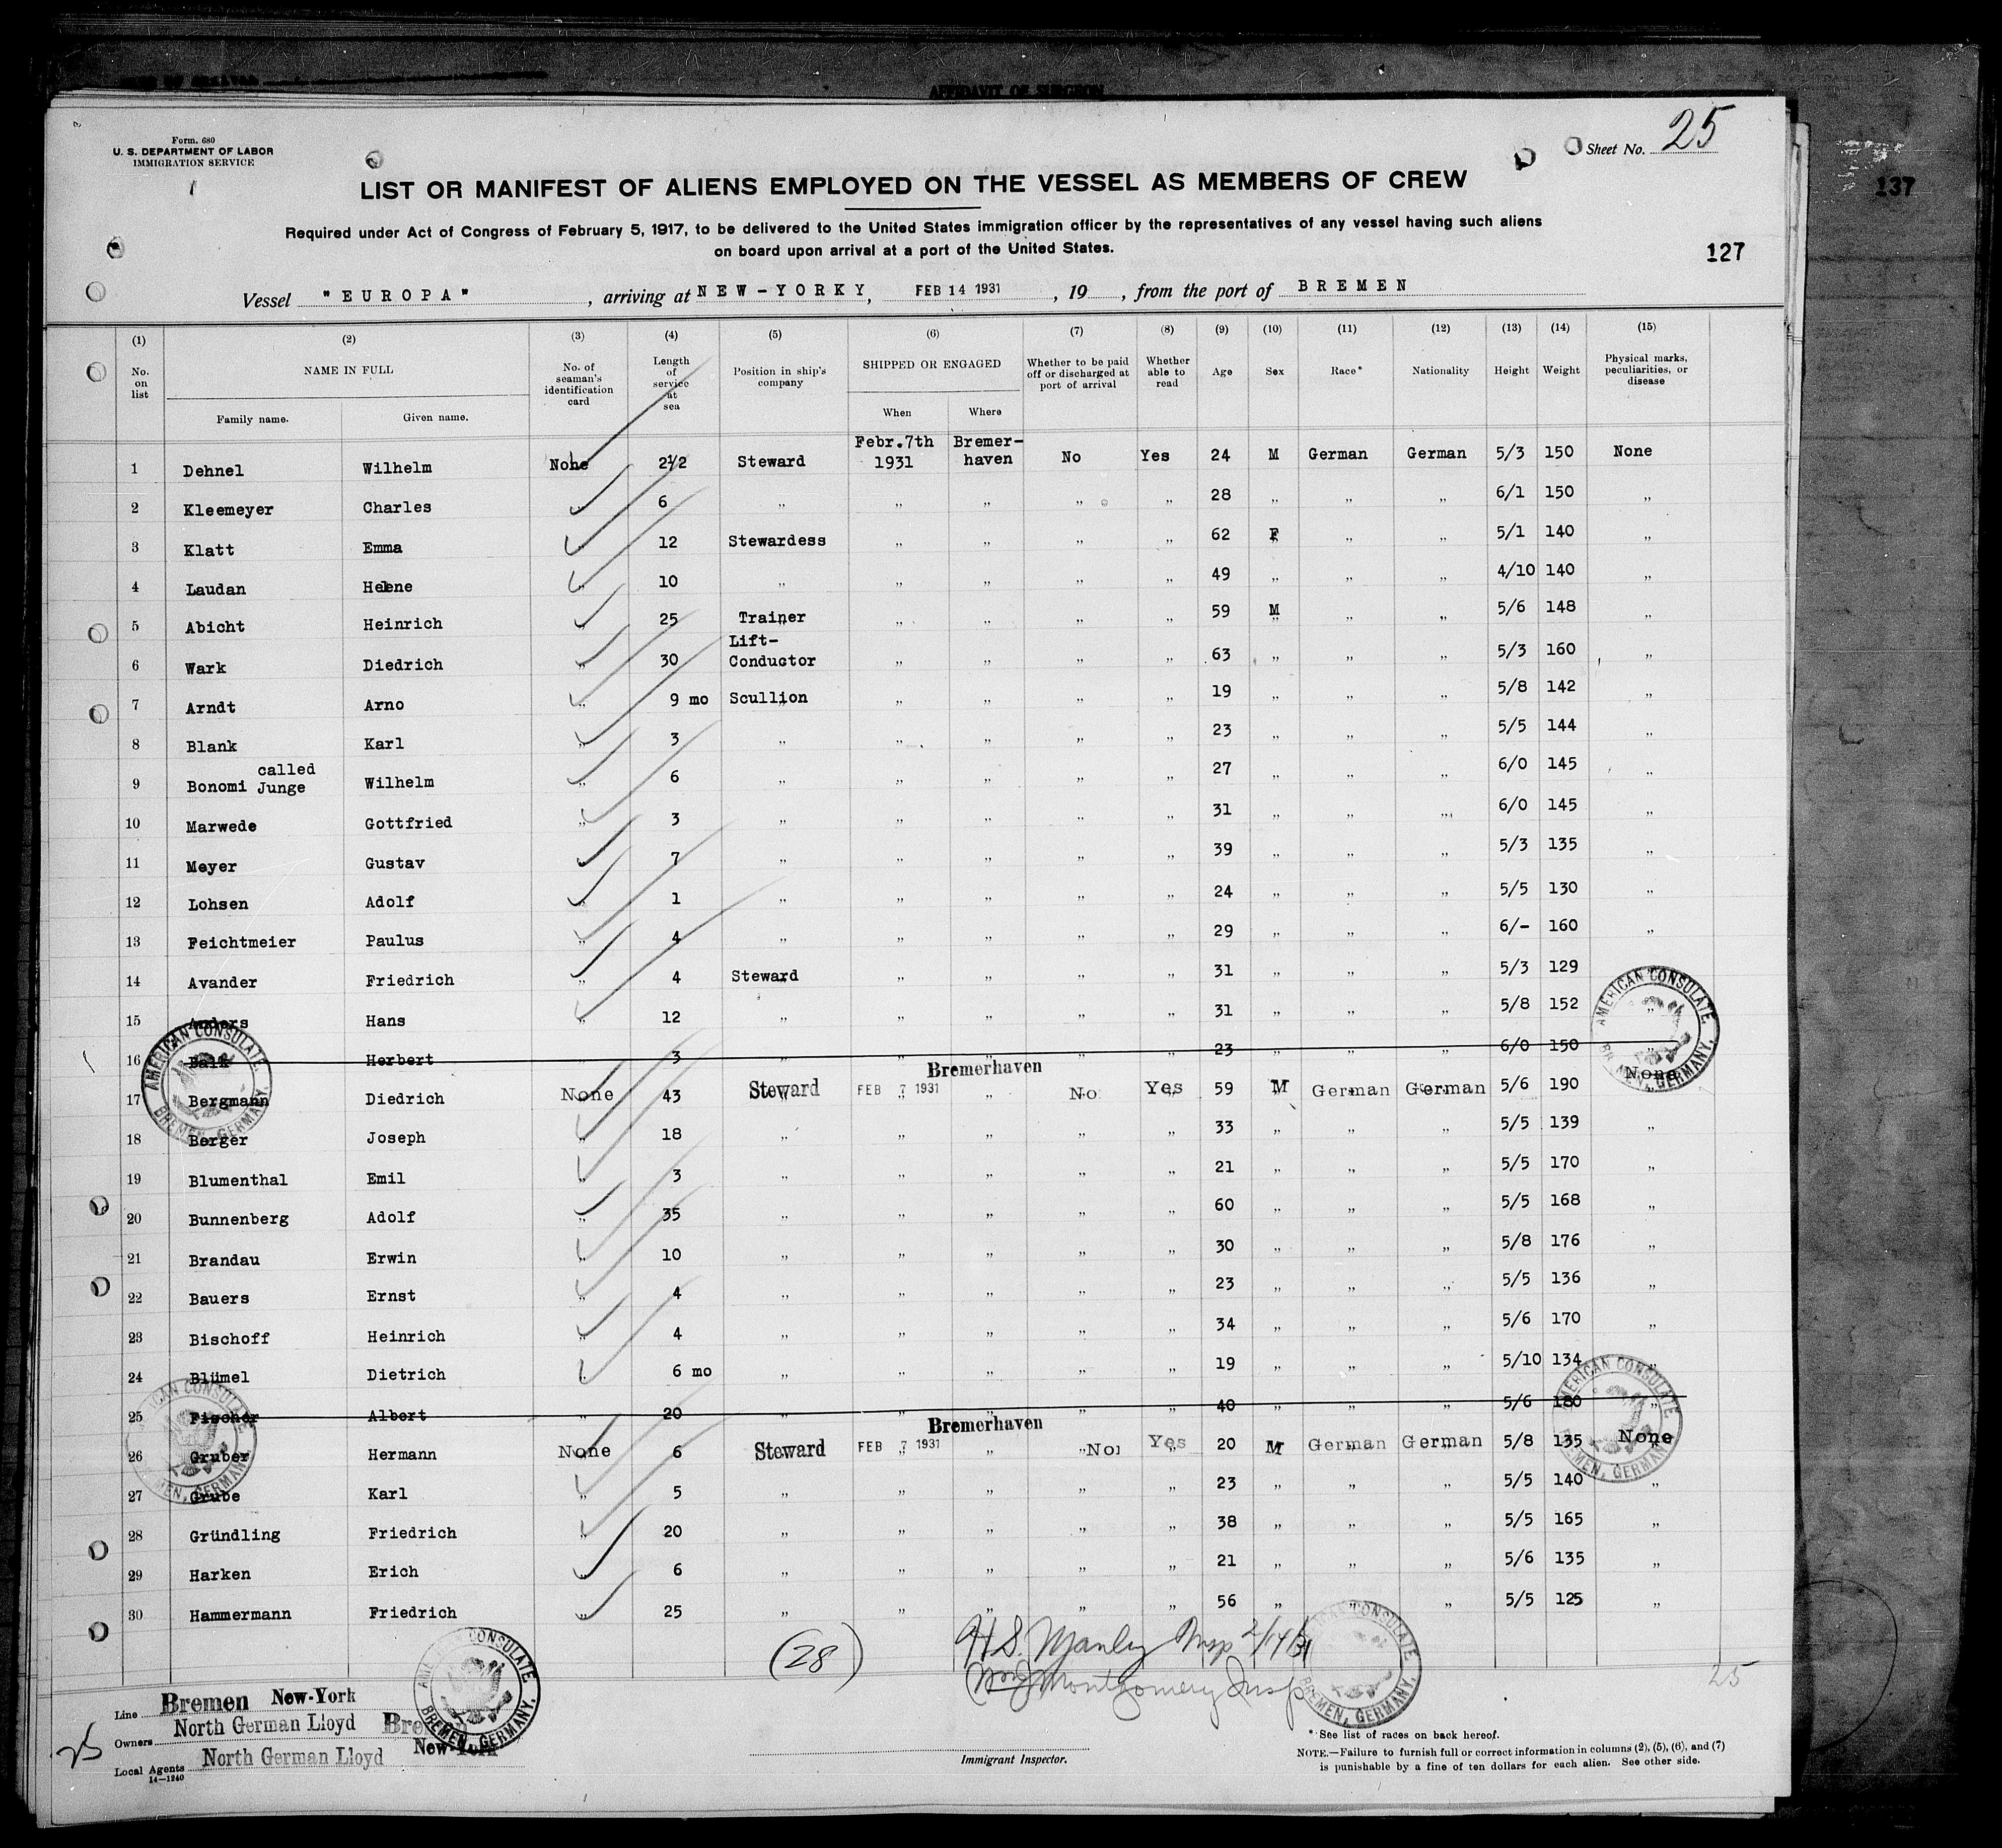 AFFIDAVIT OF SURGEON
Form. 680
U. S. DEPARTMENT OF LABOR
IMMIGRATION SERVICE
Sheet No. 25
137
LIST OR MANIFEST OF ALIENS EMPLOYED ON THE VESSEL AS MEMBERS OF CREW
Required under Act of Congress of February 5, 1917, to be delivered to the United States immigration officer by the representatives of any vessel having such aliens
on board upon arrival at a port of the United States.
127
Vessel "EUROPA", arriving at NEW-YORKY, FEB 14 1931, 19 , from the port of BREMEN
(1) (2) (3) (4) (5) (6) (7) (8) (9) (10) (11) (12) (13) (14) (15)
No. on list NAME IN FULL Family name. Given name. No. of seaman's identification card Length of service at sea Position in ship's company SHIPPED OR ENGAGED When Where Whether to be paid off or discharged at port of arrival Whether able to read Age Sex Race* Nationality Height Weight Physical marks, peculiarities, or disease
1 Dehnel Wilhelm None 2½ Steward Febr.7th 1931 Bremer-haven No Yes 24 M German German 5/3 150 None
2 Kleemeyer Charles " 6 " " " " " 28 " " " 6/1 150 "
3 Klatt Emma " 12 Stewardess " " " " 62 F " " 5/1 140 "
4 Laudan Helene " 10 " " " " " 49 " " " 4/10 140 "
5 Abicht Heinrich " 25 Trainer " " " " 59 M " " 5/6 148 "
6 Wark Diedrich " 30 Lift-Conductor " " " " 63 " " " 5/3 160 "
7 Arndt Arno " 9 mo Scullion " " " " 19 " " " 5/8 142 "
8 Blank Karl " 3 " " " " " 23 " " " 5/5 144 "
9 Bonomi called Junge Wilhelm " 6 " " " " " 27 " " " 6/0 145 "
10 Marwede Gottfried " 3 " " " " " 31 " " " 6/0 145 "
11 Meyer Gustav " 7 " " " " " 39 " " " 5/3 135 "
12 Lohsen Adolf " 1 " " " " " 24 " " " 5/5 130 "
13 Feichtmeier Paulus " 4 " " " " " 29 " " " 6/- 160 "
14 Avander Friedrich " 4 Steward " " " " 31 " " " 5/3 129 "
15 Anders Hans " 12 " " " " " 31 " " " 5/8 152 "
16 Balk Herbert " 3 " " " " " 23 " " " 6/0 150 "
17 Bergmann Diedrich None 43 Steward FEB 7 1931 Bremerhaven No Yes 59 M German German 5/6 190 None
18 Berger Joseph " 18 " " " " " 33 " " " 5/5 139 "
19 Blumenthal Emil " 3 " " " " " 21 " " " 5/5 170 "
20 Bunnenberg Adolf " 35 " " " " " 60 " " " 5/5 168 "
21 Brandau Erwin " 10 " " " " " 30 " " " 5/8 176 "
22 Bauers Ernst " 4 " " " " " 23 " " " 5/5 136 "
23 Bischoff Heinrich " 4 " " " " " 34 " " " 5/6 170 "
24 Blümel Dietrich " 6 mo " " " " " 19 " " " 5/10 134 "
25 Fischer Albert " 20 " " " " " 40 " " " 5/6 180 "
26 Gruber Hermann None 6 Steward FEB 7 1931 Bremerhaven No Yes 20 M German German 5/8 135 None
27 Grube Karl " 5 " " " " " 23 " " " 5/5 140 "
28 Gründling Friedrich " 20 " " " " " 38 " " " 5/5 165 "
29 Harken Erich " 6 " " " " " 21 " " " 5/6 135 "
30 Hammermann Friedrich " 25 " " " " " 56 " " " 5/5 125 "
AMERICAN CONSULATE BREMEN, GERMANY.
AMERICAN CONSULATE BREMEN, GERMANY.
AMERICAN CONSULATE BREMEN, GERMANY.
AMERICAN CONSULATE BREMEN, GERMANY.
AMERICAN CONSULATE BREMEN, GERMANY.
AMERICAN CONSULATE BREMEN, GERMANY.
(28)
H.S. Manley Insp 2/14/31
Montgomery Insp
25
Line Bremen New-York
Owners North German Lloyd
Bremen New-York
Local Agents North German Lloyd
14—1240
25
Immigrant Inspector.
* See list of races on back hereof.
NOTE.—Failure to furnish full or correct information in columns (2), (5), (6), and (7)
is punishable by a fine of ten dollars for each alien. See other side.